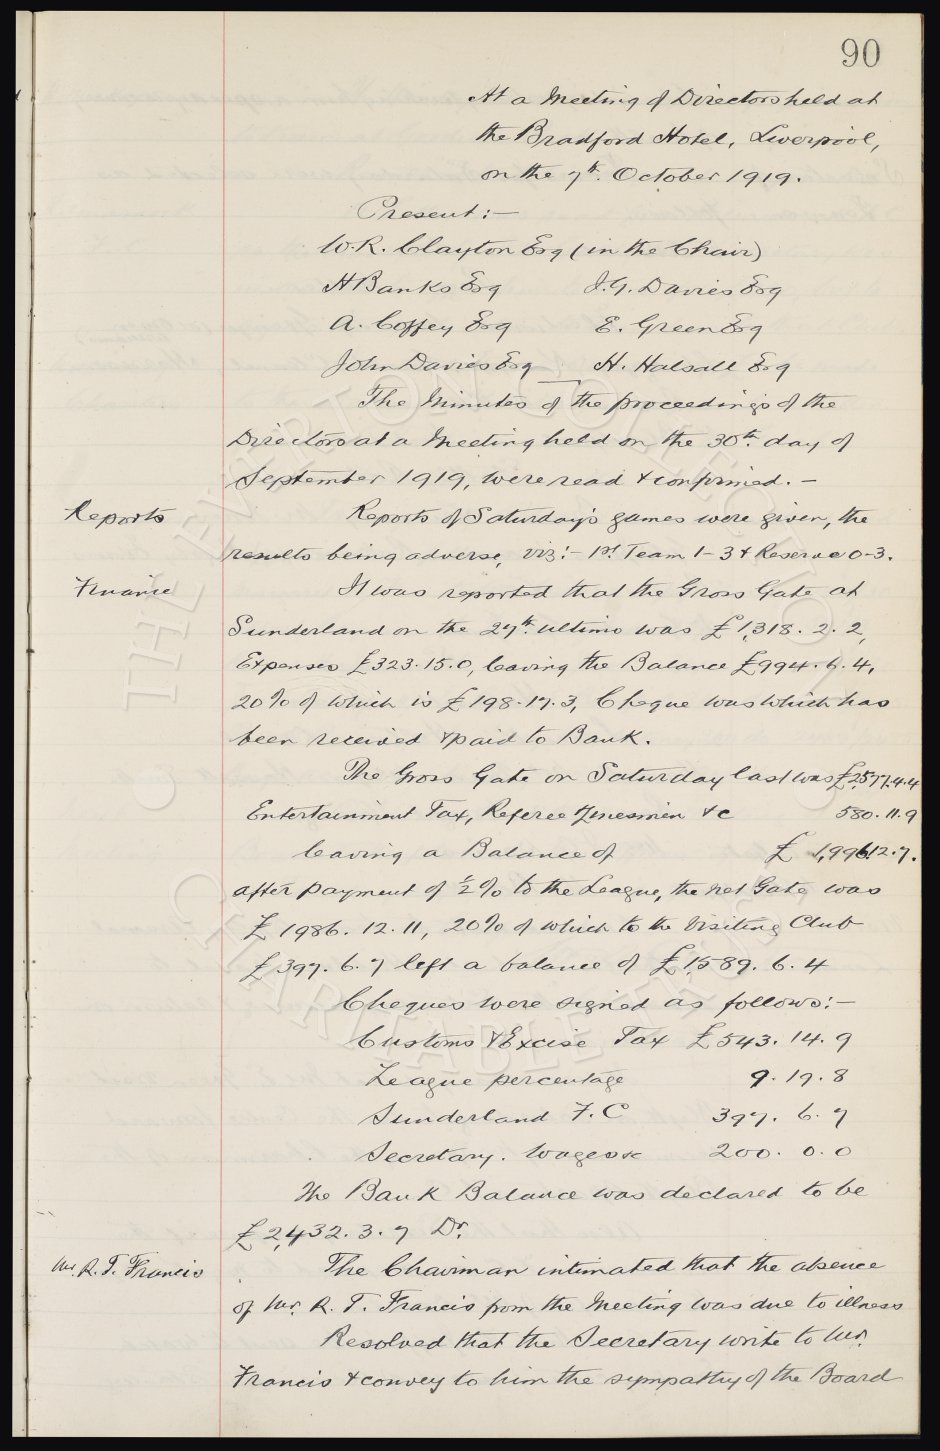 90
At a Meeting of Directors held at
the Bradford Hotel, Liverpool,
on the 7th. October 1919.
Present:—
W. R. Clayton Esq (in the Chair)
H Banks Esq J. G. Davies Esq
A. Coffey Esq E. Green Esq
John Davies Esq H. Halsall Esq
The Minutes of the proceedings of the
Directors at a Meeting held on the 30th. day of
September 1919, were read & confirmed. –
Reports Reports of Saturday's games were given, the
results being adverse, viz:- 1st Team 1-3 & Reserve 0-3.
Finance It was reported that the Gross Gate at
Sunderland on the 27th. ultimo was £1,318. 2. 2,
Expenses £323. 15. 0, leaving the Balance £994. 6. 4,
20% of which is £198. 17. 3, Cheque was which has
been received & paid to Bank.
The Gross Gate on Saturday last was £2577. 4. 4
Entertainment Tax, Referee Linesmen &c 580. 11. 9
leaving a Balance of £ 1,996. 12. 7.
after payment of ½% to the League, the net Gate was
£ 1986. 12. 11, 20% of which to the Visiting Club
£ 397. 6. 7 left a balance of £1,589. 6. 4
Cheques were signed as follows:—
Customs & Excise Tax £543. 14. 9
League percentage 9. 19. 8
Sunderland F. C 397. 6. 7
Secretary. Wages &c 200. 0. 0
The Bank Balance was declared to be
£ 2,432. 3. 7 Dr.
Mr. R. T. Francis The Chairman intimated that the absence
of Mr. R. T. Francis from the Meeting was due to illness
Resolved that the Secretary write to Mr.
Francis & convey to him the sympathy of the Board
THE EVERTON COLLECTION
CHARITABLE TRUST